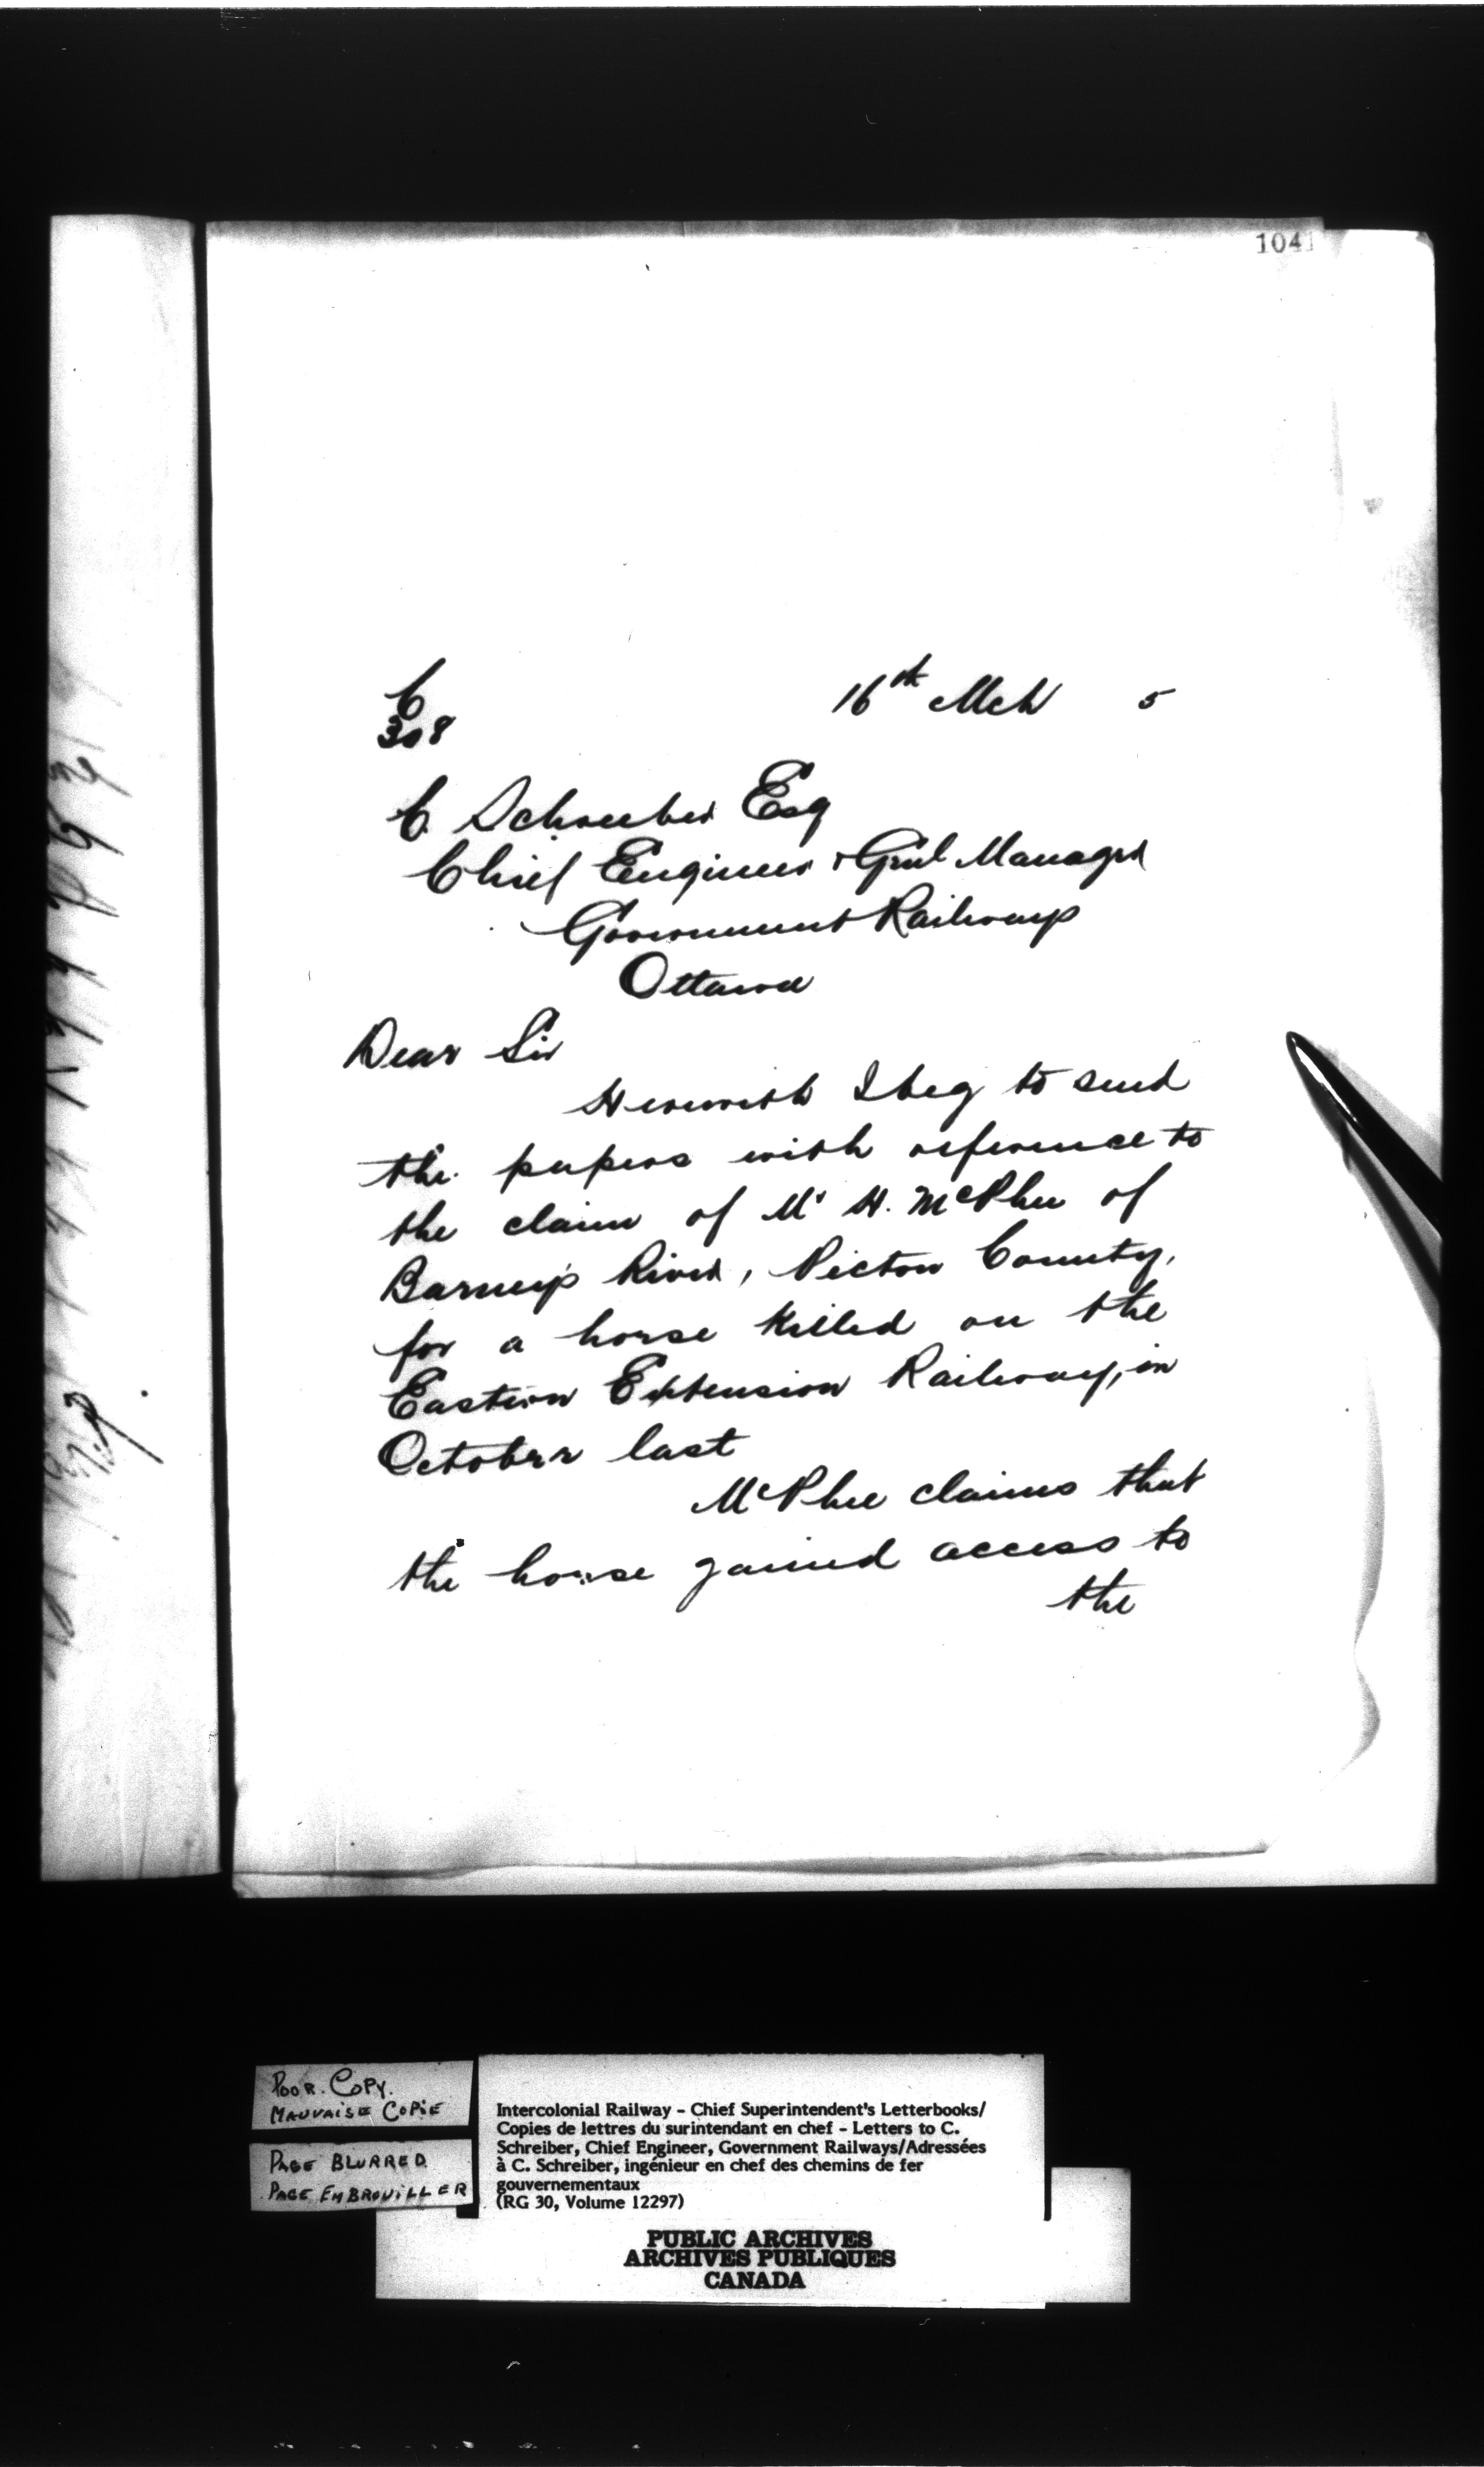 1041
C
308
16th Mch 5
C. Schreiber Esq
Chief Engineer & Genl Manager
Government Railways
Ottawa
Dear Sir
Herewith I beg to send
the papers with reference to
the claim of Mr H. McPhee of
Barney's River, Pictou County,
for a horse killed on the
Eastern Extension Railway, in
October last
McPhee claims that
the horse gained access to
the
POOR COPY.
MAUVAISE COPIE
PAGE BLURRED
PAGE EMBROUILLER
Intercolonial Railway - Chief Superintendent's Letterbooks/
Copies de lettres du surintendant en chef - Letters to C.
Schreiber, Chief Engineer, Government Railways/Adressées
à C. Schreiber, ingénieur en chef des chemins de fer
gouvernementaux
(RG 30, Volume 12297)
PUBLIC ARCHIVES
ARCHIVES PUBLIQUES
CANADA